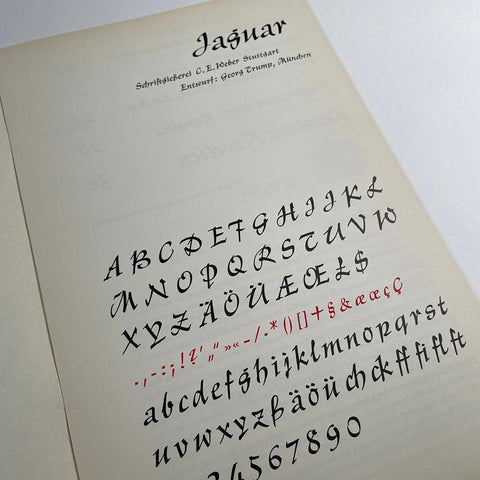 Jaguar
Schriftgießerei C. E. Weber Stuttgart
Entwurf: Georg Trump, München
A B C D E F G H I J K L
M N O P Q R S T U V W
X Y Z Ä Ö Ü Æ Œ £ $
. , - : ; ¡ ! ¿ ' „ " » « – / · * ( ) [ ] † § & æ œ ç Ç
a b c d e f g h i j k l m n o p q r s t
u v w x y z ß ä ö ü ch ck ff fi fl ft
3 4 5 6 7 8 9 0